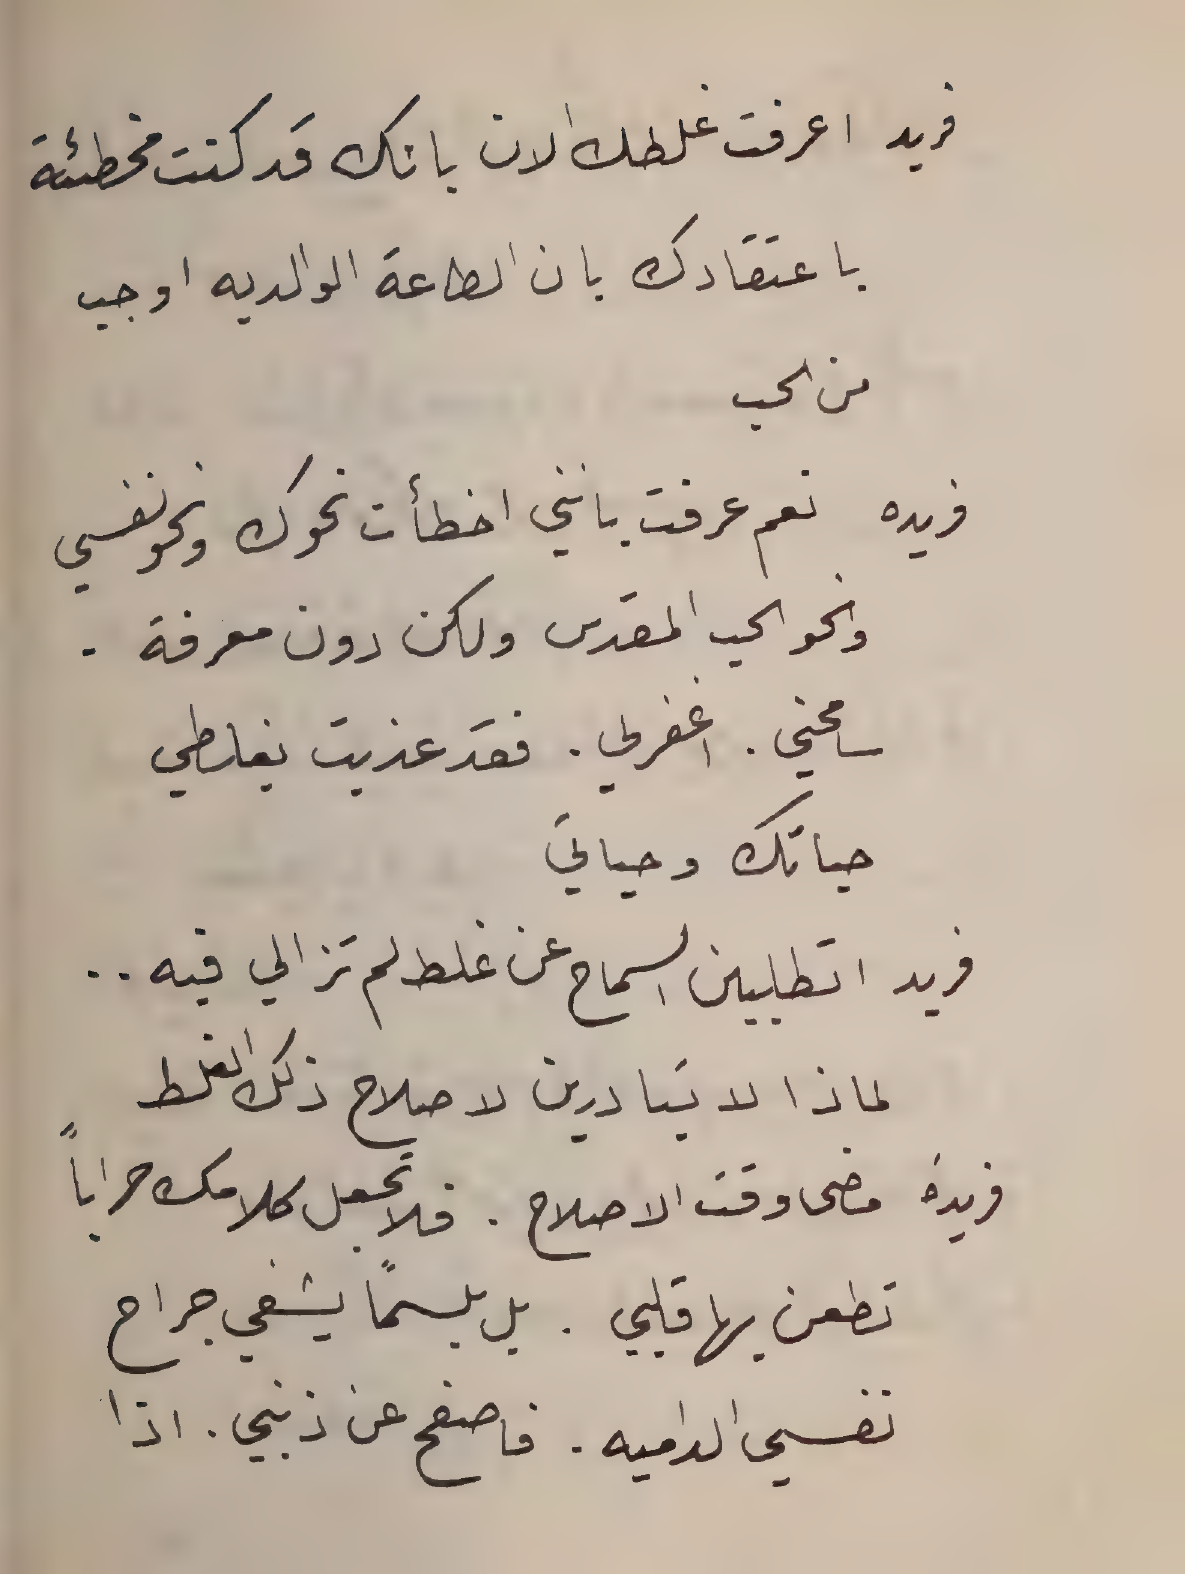 فريد اعرفت غلطك الان بانك قد كنت مخطئة
باعتقادك بان الطاعة الوالديه اوجب
من الحب
فريده نعم عرفت بانني اخطأت نحوك ونحو نفسي
ونحو الحب المقدس ولكن دون معرفة .
سامحني . اغفر لي . فقد عذبت بغلطي
حياتك وحياتي
فريد اتطلبين السماح عن غلط لم تزالي فيه ..
لماذا لا تبادرين لاصلاح ذلك الغلط
فريدة مضى وقت الاصلاح . فلا تجعل كلامك حراباً
تطعن بها قلبي . بل بلسمًا يشفي جراح
نفسي الداميه . فاصفح عن ذنبي . اذا